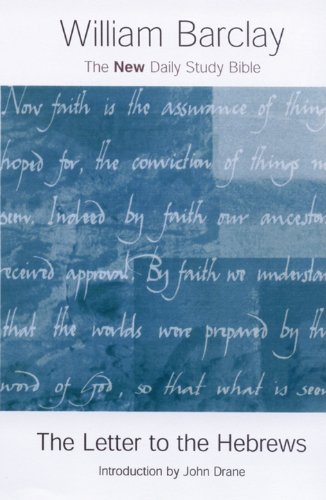 William Barclay
The New Daily Study Bible
Now faith is the assurance of thing
hoped for, the conviction of things n
seen. Indeed by faith our ancesto
received approval. By faith we understan
that the worlds were prepared by th
word of God, so that what is seen
The Letter to the Hebrews
Introduction by John Drane